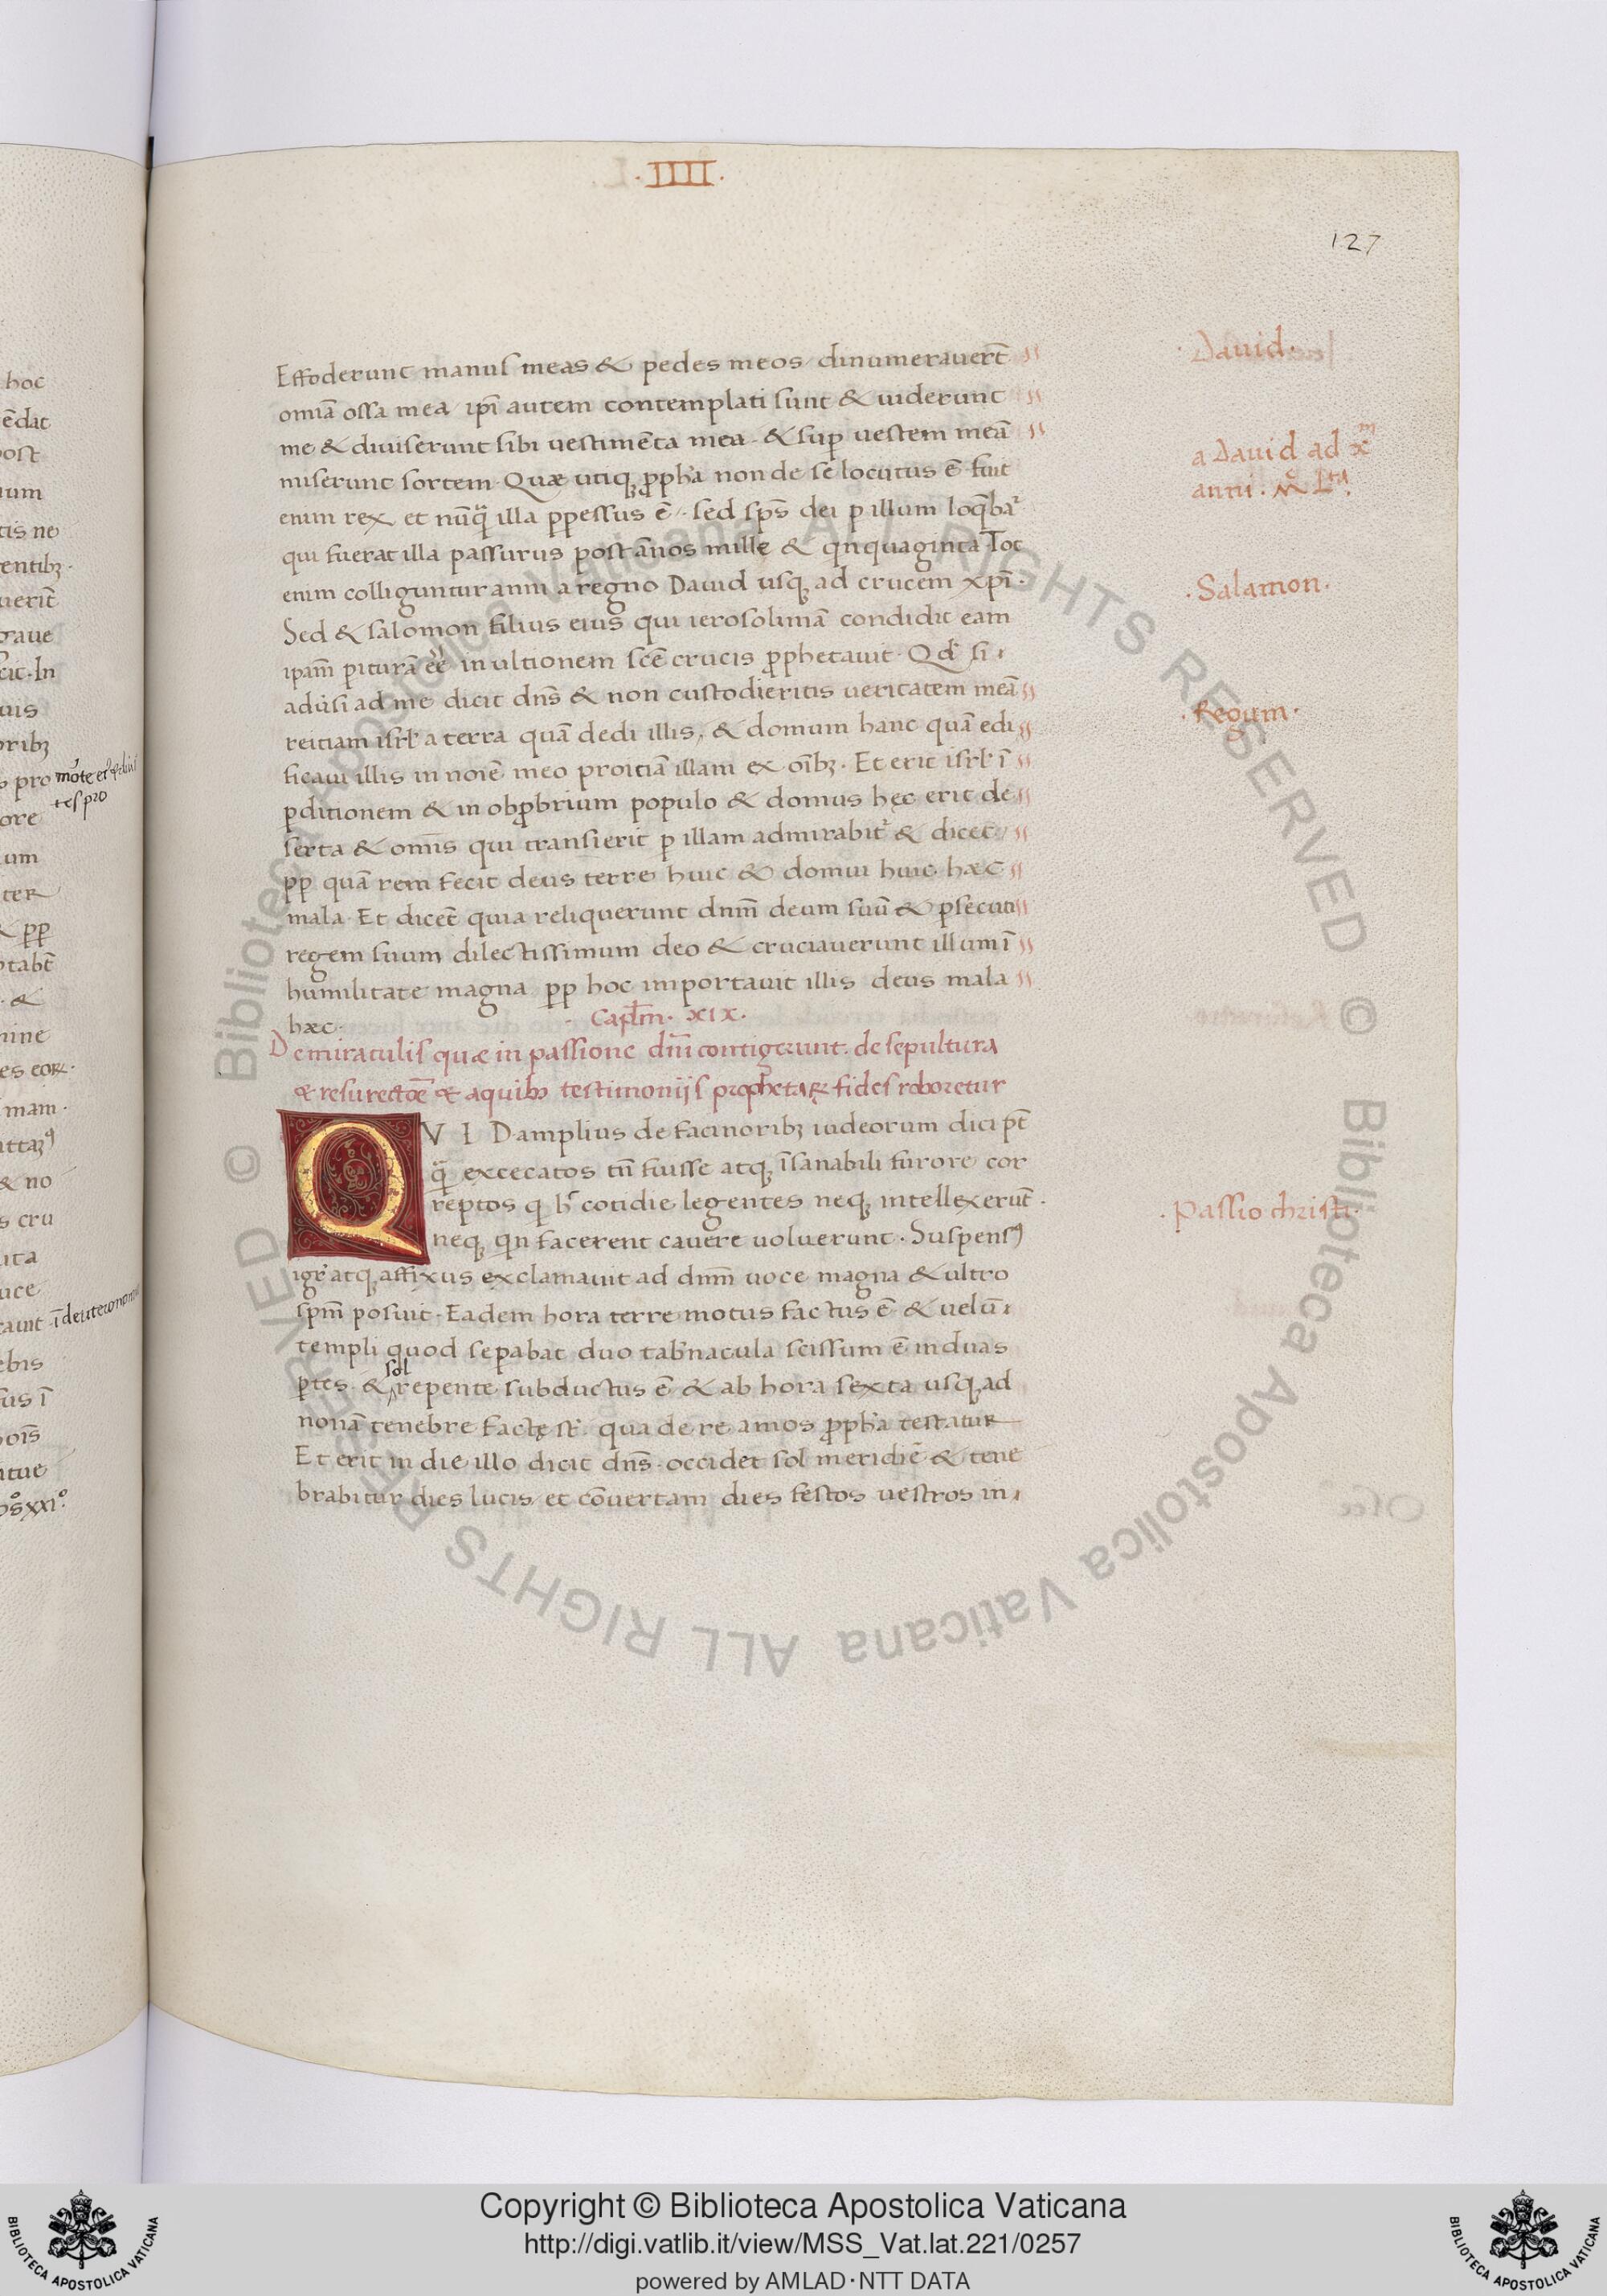 ·IIII·
127
Effoderunt manus meas & pedes meos / dinumeraverūt
omīa ossa mea / ipī autem contemplati sunt & viderunt
me & diviserunt sibi vestimēta mea · & sup vestem meā
miserunt sortem · Quæ utiq; ꝓpha non de se locutus ē fuit
enim rex et nūq̄ illa ꝑpessus ē · sed sps̄ dei ꝑ illum loq̄bat᷑
qui fuerat illa passurus post ānos mille & qnquaginta · Tot
enim colliguntur anni a regno David usq; ad crucem xpī ·
Sed & salomon filius eius qui ierosolimā condidit eam
ipam̄ ꝑiturā eē in ultionem scē crucis ꝓphetavit · Qd̄ si
adūsi ad me dicit dns̄ & non custodieritis veritatem meā
reitiam isrl̄ a terra quā dedi illis, & domum hanc quā edi
ficavi illis in noīe meo proitiā illam ex oīb; · Et erit isrl̄ ī
ꝑditionem & in obꝓbrium populo & domus hęc erit de
serta & omīs qui transierit ꝑ illam admirabit᷑ & dicet
ꝓp quā rem fecit deus terre huic & domui huic hæc
mala · Et dicēt quia reliquerunt dnm̄ deum suū & ꝑsecuti
regem suum dilectissimum deo & cruciaverunt illum ī
humilitate magna ꝓp hoc importavit illis deus mala
hæc ·
Capl̄m · XIX ·
De miraculis quæ in passione dn̄i contigerunt · de sepultura
& resurectōe & a quib; testimonijs prophetaꝝ fides roboretur
Q V I D amplius de facinorib; iudeorum dici pt̄
q̄ excecatos tū fuisse atq; īsanabili furore cor
reptos q hͨ cotidie legentes neq; intellexerūt ·
neq; qn facerent cavere voluerunt · Suspensꝰ
igr̄ atq; affixus exclamavit ad dnm̄ voce magna & ultro
spm̄ posuit · Eadem hora terre motus factus ē & velū
templi quod seꝑabat duo tab̄nacula scissum ē in duas
ꝑtes · & sol repente subductus ē & ab hora sexta usq; ad
nonā tenebre factę st̄ · qua de re amos ꝓpha testatur
Et erit in die illo dicit dns̄ · occidet sol meridiē & tene
brabitur dies lucis / et cōvertam dies festos vestros in
· David ·
a David ad xᵐ
anni · M L^ta
· Salamon ·
· Regum ·
· Passio christi ·
Copyright © Biblioteca Apostolica Vaticana
http://digi.vatlib.it/view/MSS_Vat.lat.221/0257
powered by AMLAD·NTT DATA
BIBLIOTECA APOSTOLICA VATICANA
BIBLIOTECA APOSTOLICA VATICANA
© Biblioteca Apostolica Vaticana ALL RIGHTS RESERVED © Biblioteca Apostolica Vaticana ALL RIGHTS RESERVED